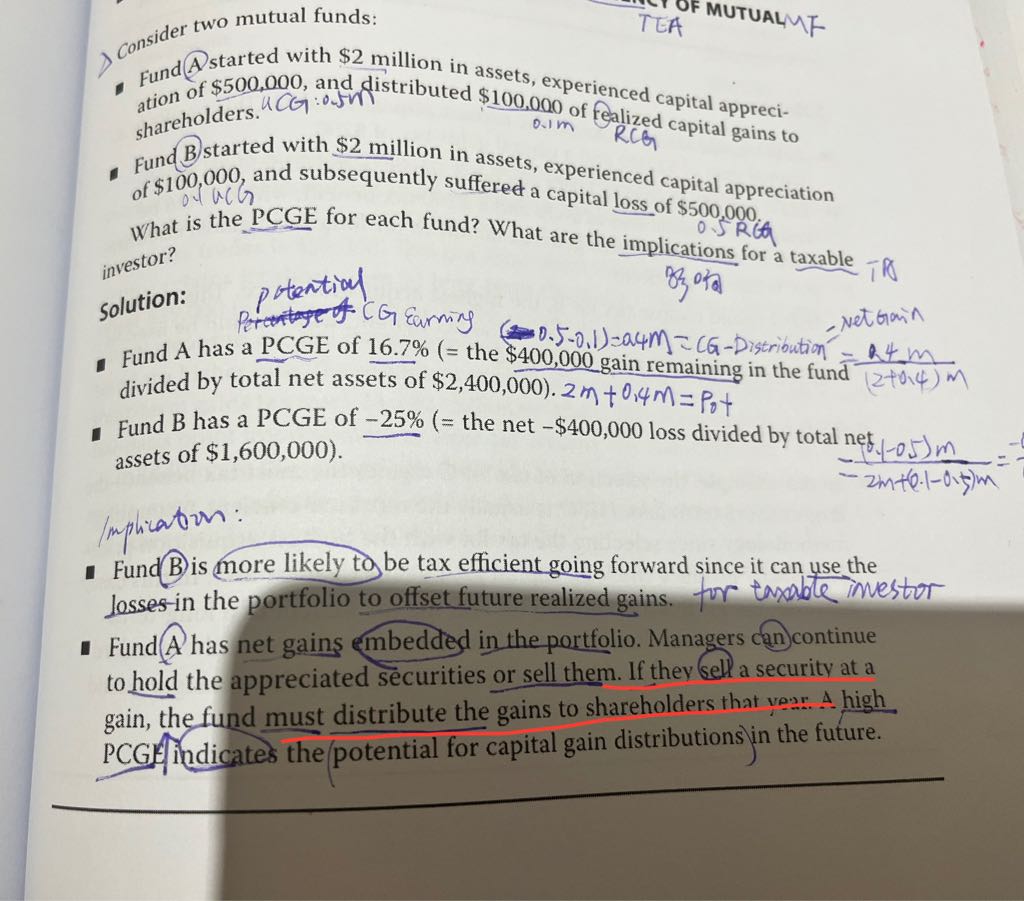 OF MUTUAL MF
TEA
Consider two mutual funds:
▪ Fund A started with $2 million in assets, experienced capital appreci-
ation of $500,000, and distributed $100,000 of realized capital gains to
shareholders. UCG: 0.5m 0.1m RCG
▪ Fund B started with $2 million in assets, experienced capital appreciation
of $100,000, and subsequently suffered a capital loss of $500,000.
UCG 0.5 RCG
What is the PCGE for each fund? What are the implications for a taxable
investor?
影响
Solution:
potential
Percentage of CG Earning (0.5-0.1)=0.4M=CG-Distribution Net Gain
▪ Fund A has a PCGE of 16.7% (= the $400,000 gain remaining in the fund = 0.4m
divided by total net assets of $2,400,000). 2m+0.4m=Pot (2+0.4)m
▪ Fund B has a PCGE of −25% (= the net −$400,000 loss divided by total net
assets of $1,600,000). (0.1-0.5)m
2m+(0.1-0.5)m =
Implication:
▪ Fund B is more likely to be tax efficient going forward since it can use the
losses in the portfolio to offset future realized gains. for taxable investor
▪ Fund A has net gains embedded in the portfolio. Managers can continue
to hold the appreciated securities or sell them. If they sell a security at a
gain, the fund must distribute the gains to shareholders that year. A high
PCGE indicates the potential for capital gain distributions in the future.